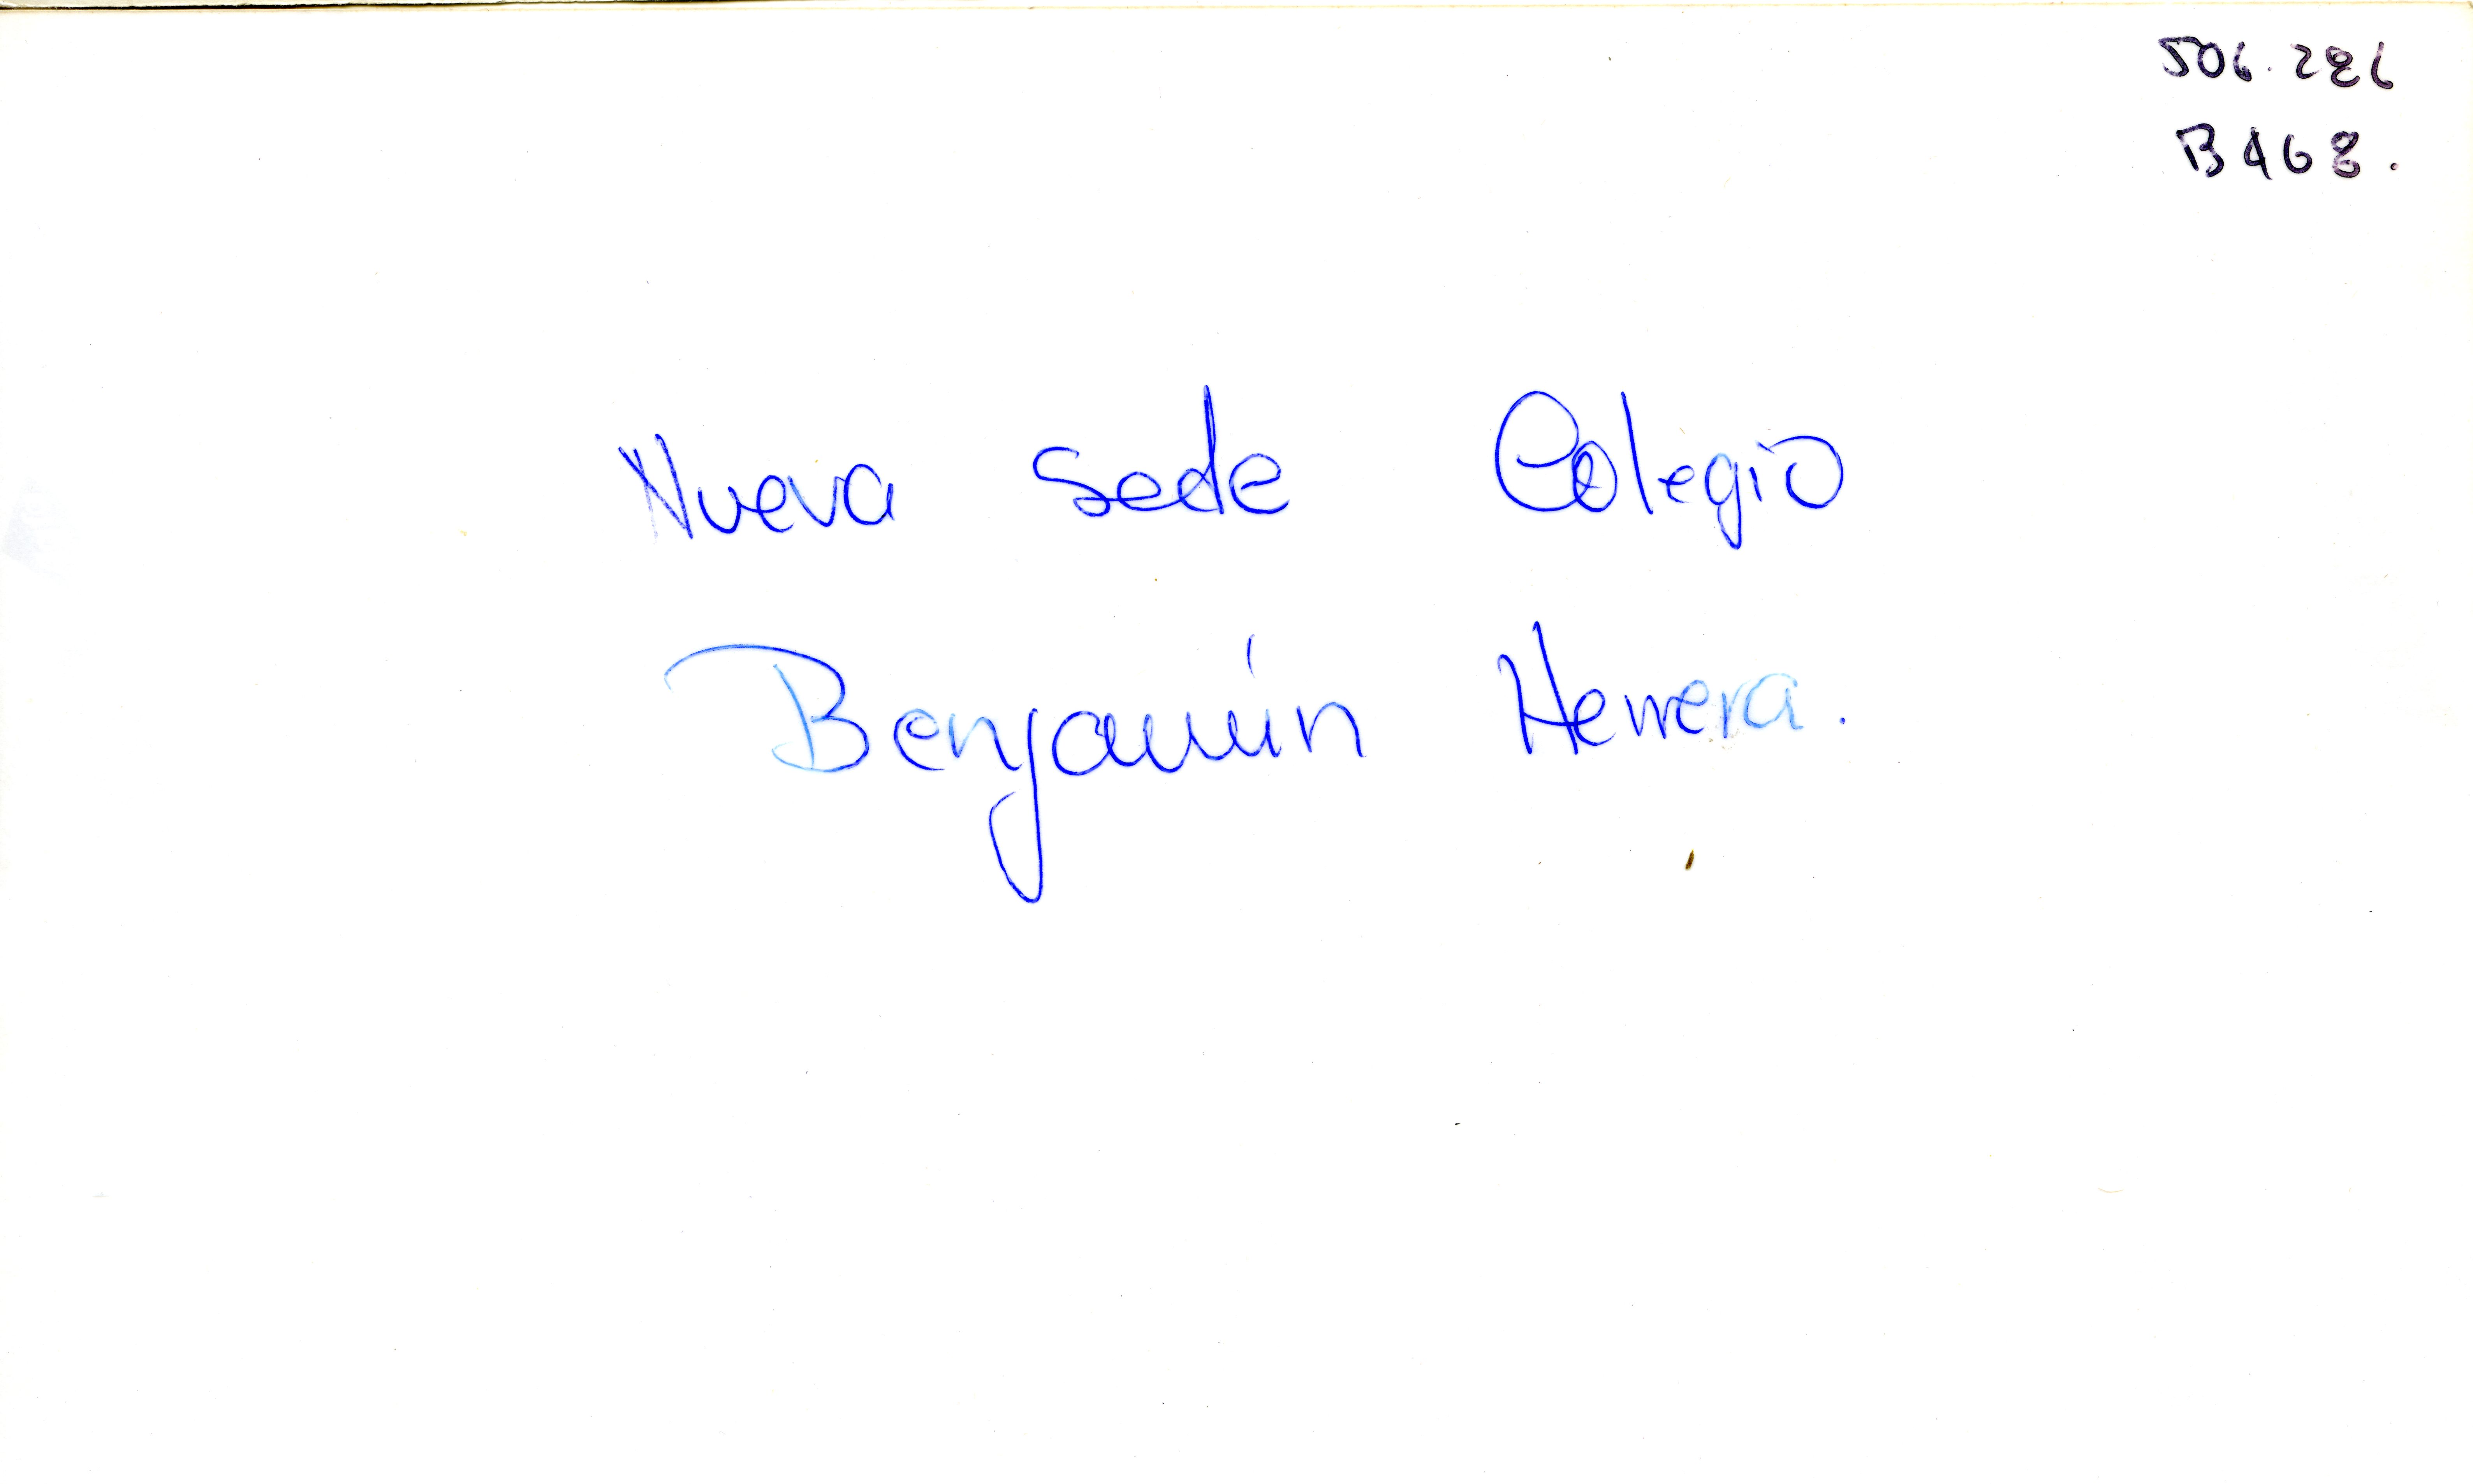 506.286
B468.
Nueva sede Colegio
Benjamín Herrera.